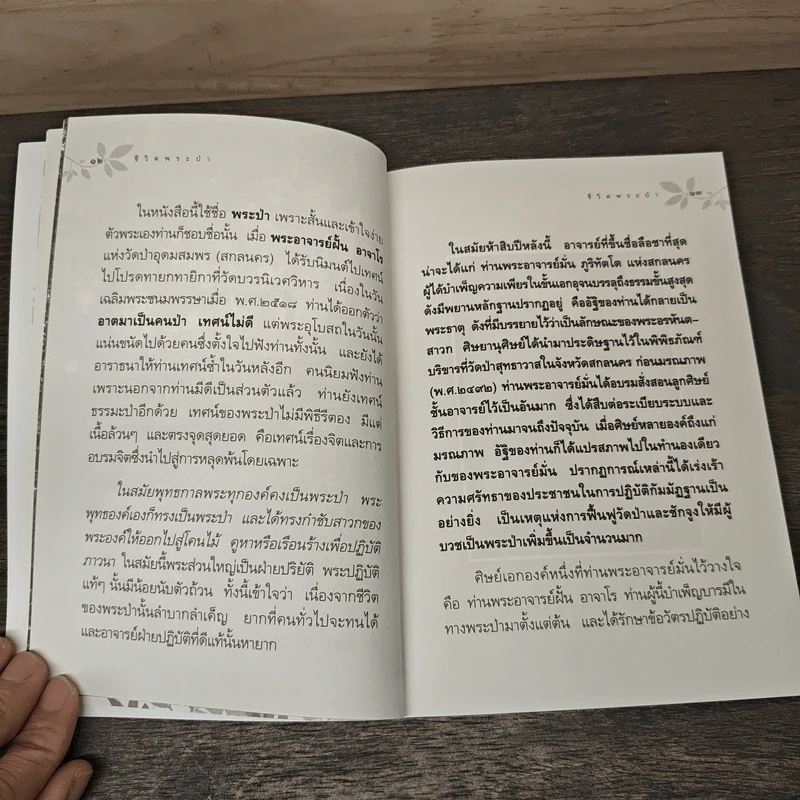 ๑๒ ชีวิตพระป่า
ในหนังสือนี้ใช้ชื่อ พระป่า เพราะสั้นและเข้าใจง่าย
ตัวพระเองท่านก็ชอบชื่อนั้น เมื่อ พระอาจารย์ฝั้น อาจาโร
แห่งวัดป่าอุดมสมพร (สกลนคร) ได้รับนิมนต์ไปเทศน์
ไปโปรดทายกทายิกาที่วัดบวรนิเวศวิหาร เนื่องในวัน
เฉลิมพระชนมพรรษาเมื่อ พ.ศ.๒๕๑๘ ท่านได้ออกตัวว่า
อาตมาเป็นคนป่า เทศน์ไม่ดี แต่พระอุโบสถในวันนั้น
แน่นขนัดไปด้วยคนซึ่งตั้งใจไปฟังท่านทั้งนั้น และยังได้
อาราธนาให้ท่านเทศน์ซ้ำในวันหลังอีก คนนิยมฟังท่าน
เพราะนอกจากท่านมีดีเป็นส่วนตัวแล้ว ท่านยังเทศน์
ธรรมะป่าอีกด้วย เทศน์ของพระป่าไม่มีพิธีรีตอง มีแต่
เนื้อล้วนๆ และตรงจุดสุดยอด คือเทศน์เรื่องจิตและการ
อบรมจิตซึ่งนำไปสู่การหลุดพ้นโดยเฉพาะ
ในสมัยพุทธกาลพระทุกองค์คงเป็นพระป่า พระ
พุทธองค์เองก็ทรงเป็นพระป่า และได้ทรงกำชับสาวกของ
พระองค์ให้ออกไปสู่โคนไม้ คูหาหรือเรือนร้างเพื่อปฏิบัติ
ภาวนา ในสมัยนี้พระส่วนใหญ่เป็นฝ่ายปริยัติ พระปฏิบัติ
แท้ๆ นั้นมีน้อยนับตัวถ้วน ทั้งนี้เข้าใจว่า เนื่องจากชีวิต
ของพระป่านั้นลำบากลำเค็ญ ยากที่คนทั่วไปจะทนได้
และอาจารย์ฝ่ายปฏิบัติที่ดีแท้นั้นหายาก
ชีวิตพระป่า ๑๓
ในสมัยห้าสิบปีหลังนี้ อาจารย์ที่ขึ้นชื่อลือชาที่สุด
น่าจะได้แก่ ท่านพระอาจารย์มั่น ภูริทัตโต แห่งสกลนคร
ผู้ได้บำเพ็ญความเพียรในขั้นเอกอุจนบรรลุถึงธรรมขั้นสูงสุด
ดังมีพยานหลักฐานปรากฏอยู่ คืออัฐิของท่านได้กลายเป็น
พระธาตุ ดังที่มีบรรยายไว้ว่าเป็นลักษณะของพระอรหันต-
สาวก ศิษยานุศิษย์ได้นำมาประดิษฐานไว้ในพิพิธภัณฑ์
บริขารที่วัดป่าสุทธาวาสในจังหวัดสกลนคร ก่อนมรณภาพ
(พ.ศ.๒๔๙๒) ท่านพระอาจารย์มั่นได้อบรมสั่งสอนลูกศิษย์
ชั้นอาจารย์ไว้เป็นอันมาก ซึ่งได้สืบต่อระเบียบระบบและ
วิธีการของท่านมาจนถึงปัจจุบัน เมื่อศิษย์หลายองค์ถึงแก่
มรณภาพ อัฐิของท่านก็ได้แปรสภาพไปในทำนองเดียว
กับของพระอาจารย์มั่น ปรากฏการณ์เหล่านี้ได้เร่งเร้า
ความศรัทธาของประชาชนในการปฏิบัติกัมมัฏฐานเป็น
อย่างยิ่ง เป็นเหตุแห่งการฟื้นฟูวัดป่าและชักจูงให้มีผู้
บวชเป็นพระป่าเพิ่มขึ้นเป็นจำนวนมาก
ศิษย์เอกองค์หนึ่งที่ท่านพระอาจารย์มั่นไว้วางใจ
คือ ท่านพระอาจารย์ฝั้น อาจาโร ท่านผู้นี้บำเพ็ญบารมีใน
ทางพระป่ามาตั้งแต่ต้น และได้รักษาข้อวัตรปฏิบัติอย่าง